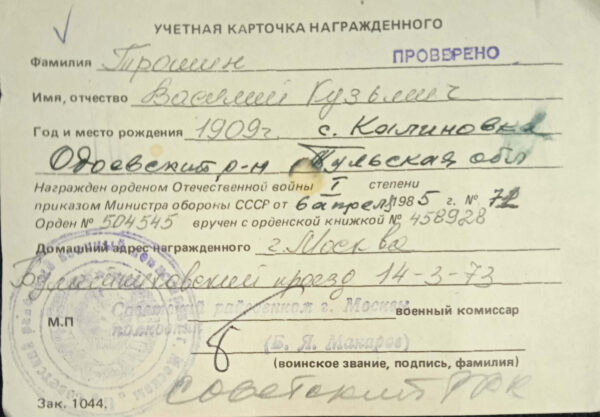 УЧЕТНАЯ КАРТОЧКА НАГРАЖДЕННОГО
Фамилия Трошин ПРОВЕРЕНО
Имя, отчество Василий Кузьмич
Год и место рождения 1909г. с. Калиновка
Одоевский р-н Тульская обл
Награжден орденом Отечественной войны I степени
приказом Министра обороны СССР от 6 апреля 1985 г. № 72
Орден № 504545 вручен с орденской книжкой № 458928
Домашний адрес награжденного г. Москва
проезд 14-3-73
Советский райвоенком г. Москвы
М.П полковник военный комиссар
(Б. Я. Макаров)
(воинское звание, подпись, фамилия)
Советский РВК
Зак. 1044.